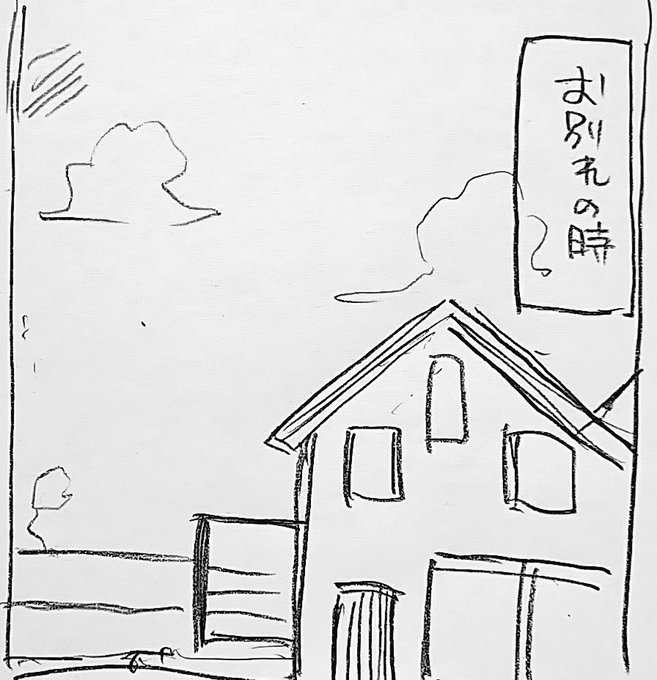 お別れの時